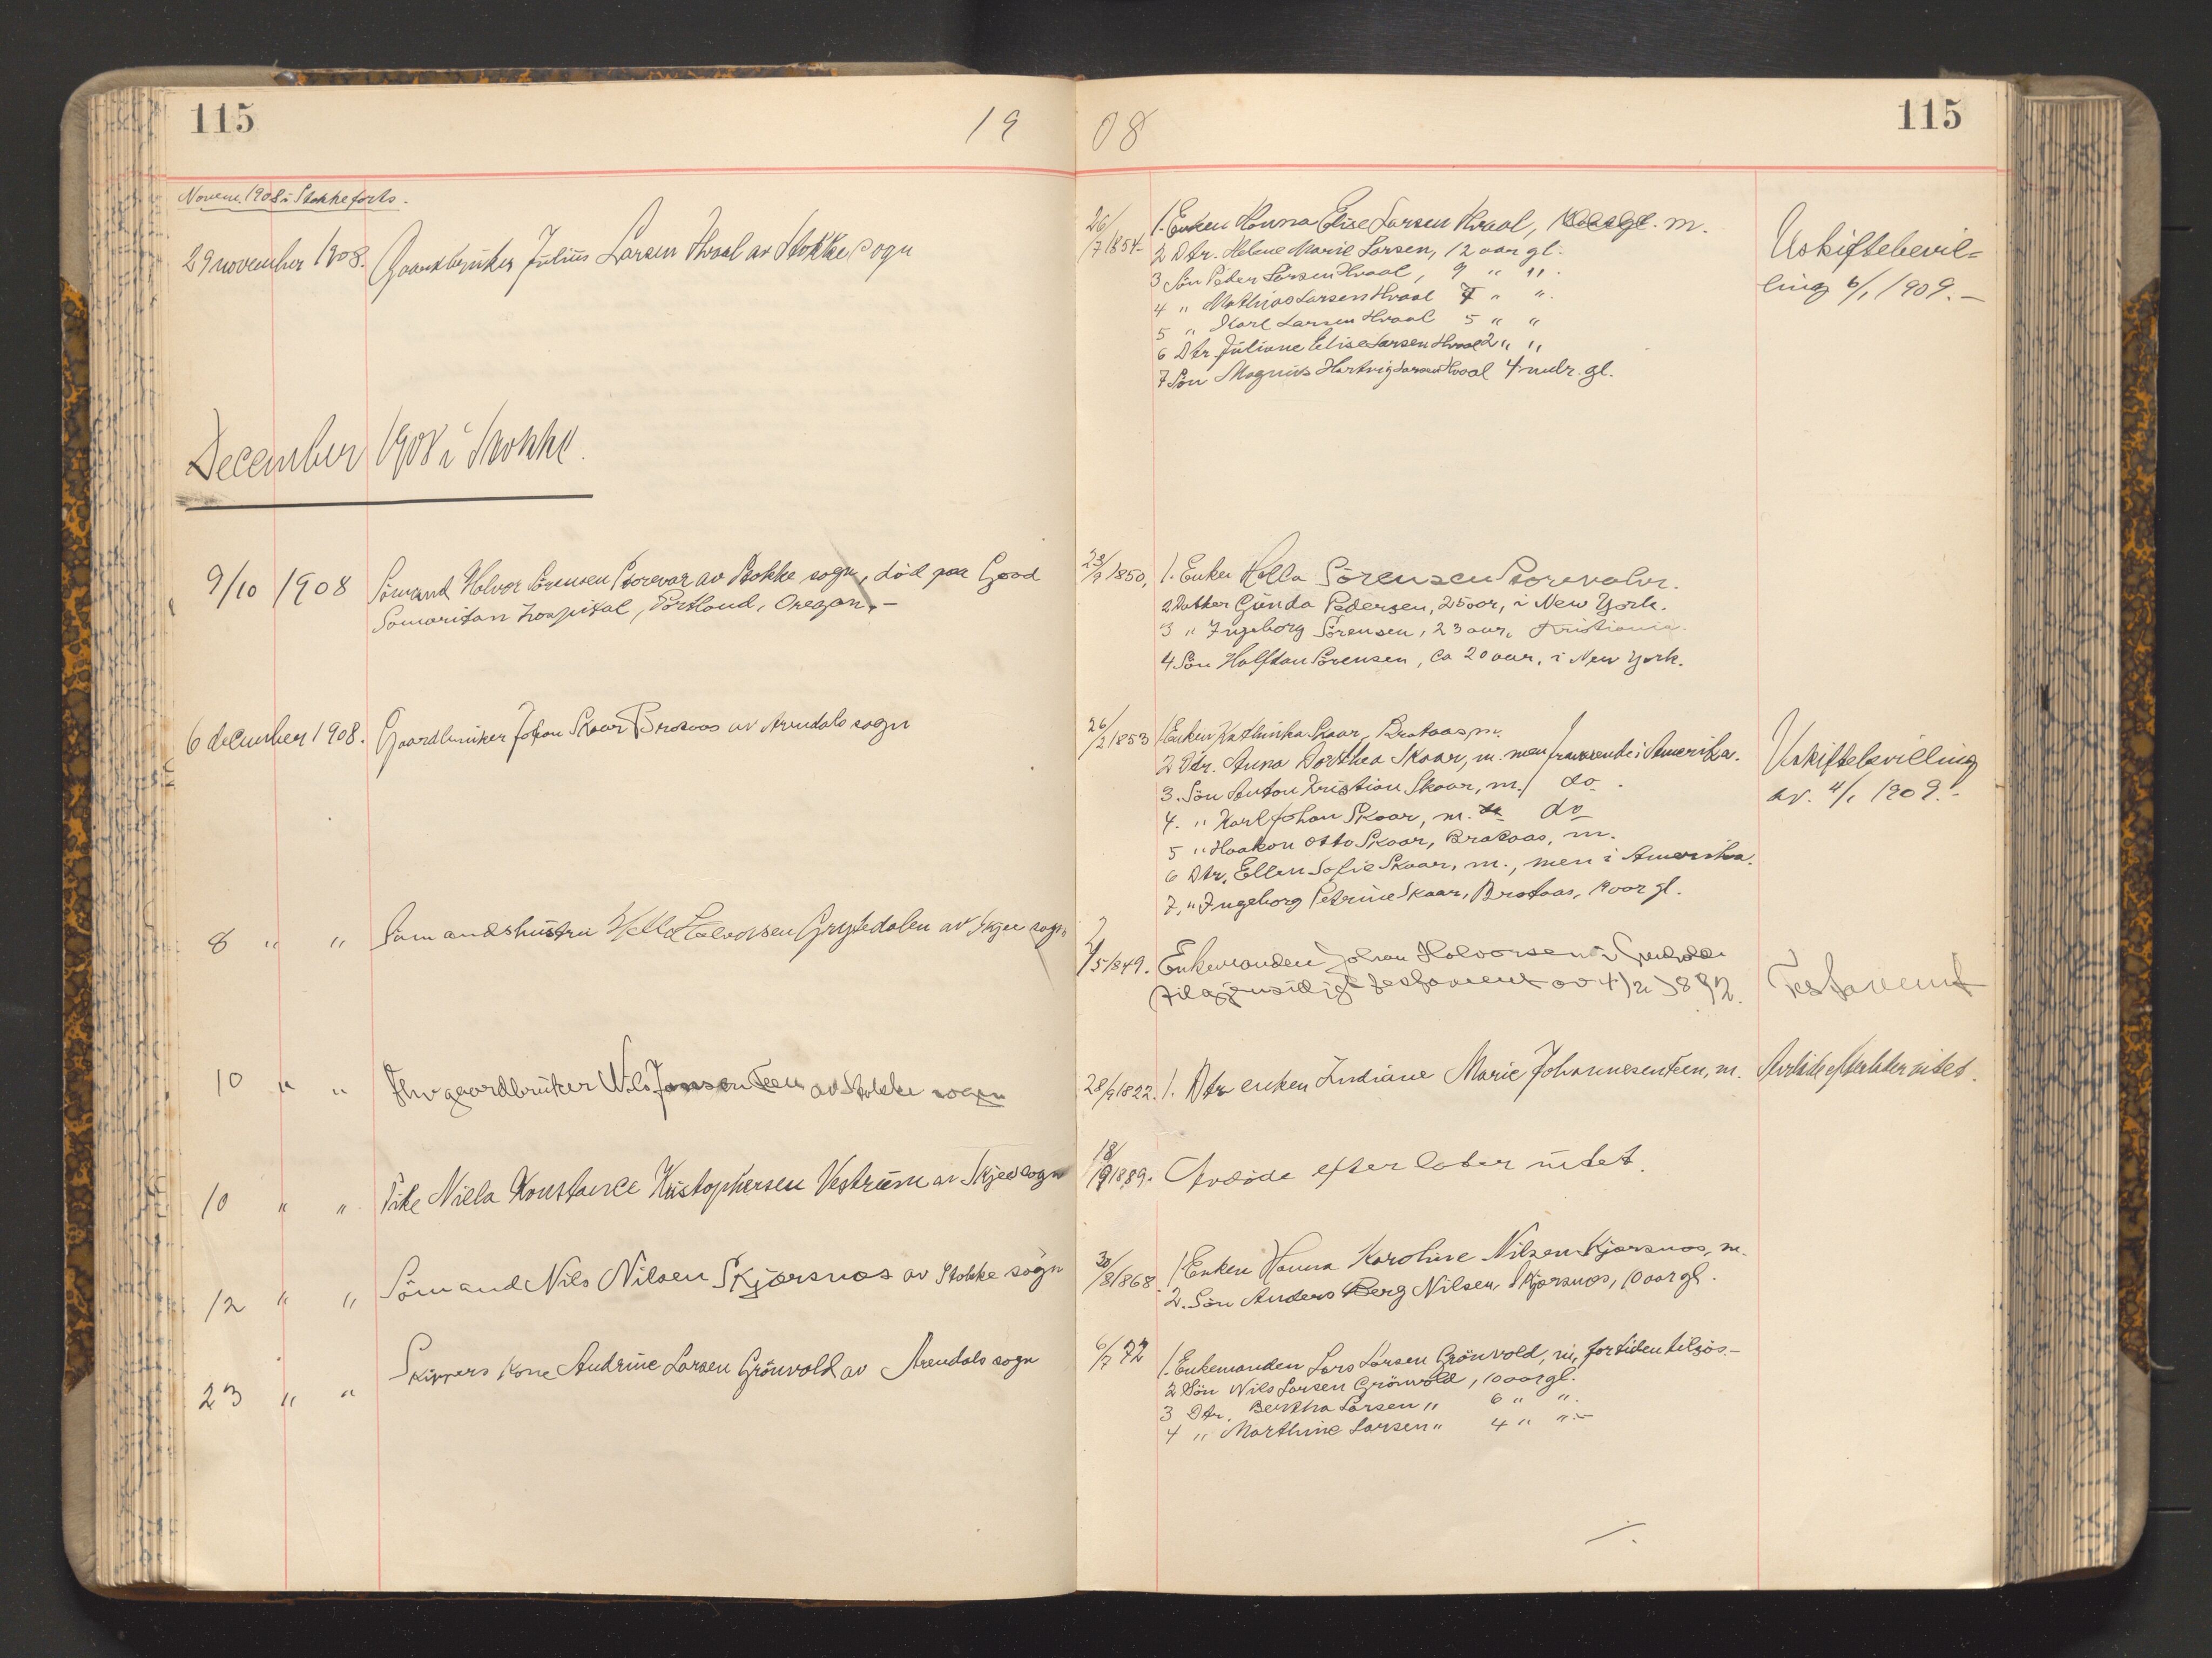 115
19
08
115
Novem. 1908 i Stokke forts.
29 november 1908. Gaardbruker Julius Larsen Hvaal av Stokke sogn
26/7 1854
1. Enken Hanna Elise Larsen Hvaal, m.
2 Dtr. Helene Marie Larsen, 12 aar gl.
3 Sön Peder Larsen Hvaal, 9 " "
4 " Mathias Larsen Hvaal 7 " "
5 " Karl Larsen Hvaal 5 " "
6 Dtr. Juliane Elise Larsen Hvaal 2 " "
7 Sön Magnus Hartvig Larsen Hvaal 4 mdr. gl.
Uskiftebevil=
ling 6/1 1909.-
December 1908 i Stokke.
9/10 1908 Sömand Halvor Sörensen Storevar av Stokke sogn, död paa Good
Samaritan hospital, Portland, Oregon.-
23/9 1850,
1. Enke Hella Sörensen Storevahr.
2 Datter Gunda Pedersen, 25 aar, i New York.
3 " Ingeborg Sörensen, 23 aar, Kristiania.
4 Sön Halfdan Sörensen, ca 20 aar, i New York.
6 december 1908. Gaardbruker Johan Skaar Brataas av Arendals sogn
26/2 1853
1 Enken Kathinka Skaar, Brataas, m.
2 Dtr. Anna Dorthea Skaar, m. men fraværende i Amerika.
3. Sön Anton Kristian Skaar, m. do.
4. " Karl Johan Skaar, m. do
5 " Haakon Otto Skaar, Brataas, m.
6 Dtr. Ellen Sofie Skaar, m., men i Amerika.
7. " Ingeborg Petrine Skaar, Brataas, aar gl.
Uskiftebevilling
av. 4/1 1909.-
8 " " Sömandshustru Halvorsen Grytedalen av Skjee sogn
/5 1849.
Enkemanden Johan Halvorsen i
gjensidigt testament av 4/2 1892.
Testament
10 " " Fhv gaardbruker Nils Jansen Feen av Stokke sogn
28/9 1822.
1. Dtr enken Indiane Marie Johannesen Feen, m.
Avdøde efterlater intet.
10 " " Pike Niela Konstance Kristophersen Vestrum av Skjee sogn
18/9 1889. Avdöde efterlater intet.
12 " " Sömand Nils Nilsen Skjærsnæs av Stokke sogn
30/8 1868
1 Enken Hanna Karoline Nilsen Skjærsnæs, m.
2. Sön Anders Berg Nilsen, Skjærsnæs, 10 aar gl.
23 " " Skippers kone Andrine Larsen Grönvold av Arendals sogn
6/7 72
1. Enkemanden Lars Larsen Grönvold, m., for tiden tilsjös.-
2 Sön Nils Larsen Grönvold, 10 aar gl.
3 Dtr. Bertha Larsen " 6 " ".
4 " Marthine Larsen " 4 " ".-